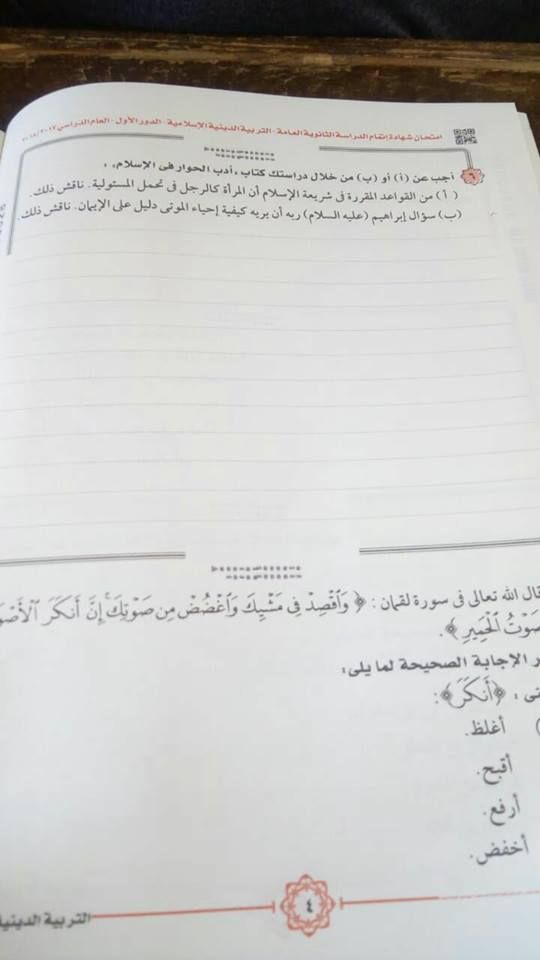 امتحان شهادة إتمام الدراسة الثانوية العامة - التربية الدينية الإسلامية - الدور الأول - العام الدراسي ٢٠١٧/٢٠١٨
٦ أجب عن (أ) أو (ب) من خلال دراستك كتاب «أدب الحوار فى الإسلام» :
( أ ) من القواعد المقررة فى شريعة الإسلام أن المرأة كالرجل فى تحمل المسئولية. ناقش ذلك.
(ب) سؤال إبراهيم (عليه السلام) ربه أن يريه كيفية إحياء الموتى دليل على الإيمان. ناقش ذلك.
قال الله تعالى فى سورة لقمان : ﴿ وَٱقْصِدْ فِى مَشْيِكَ وَٱغْضُضْ مِن صَوْتِكَ ۚ إِنَّ أَنكَرَ ٱلْأَصْو
صَوْتُ ٱلْحَمِيرِ ﴾.
ر الإجابة الصحيحة لما يلى :
نى : ﴿أَنكَرَ﴾ :
) أغلظ.
أقبح.
أرفع.
أخفض.
٤
التربية الدينية